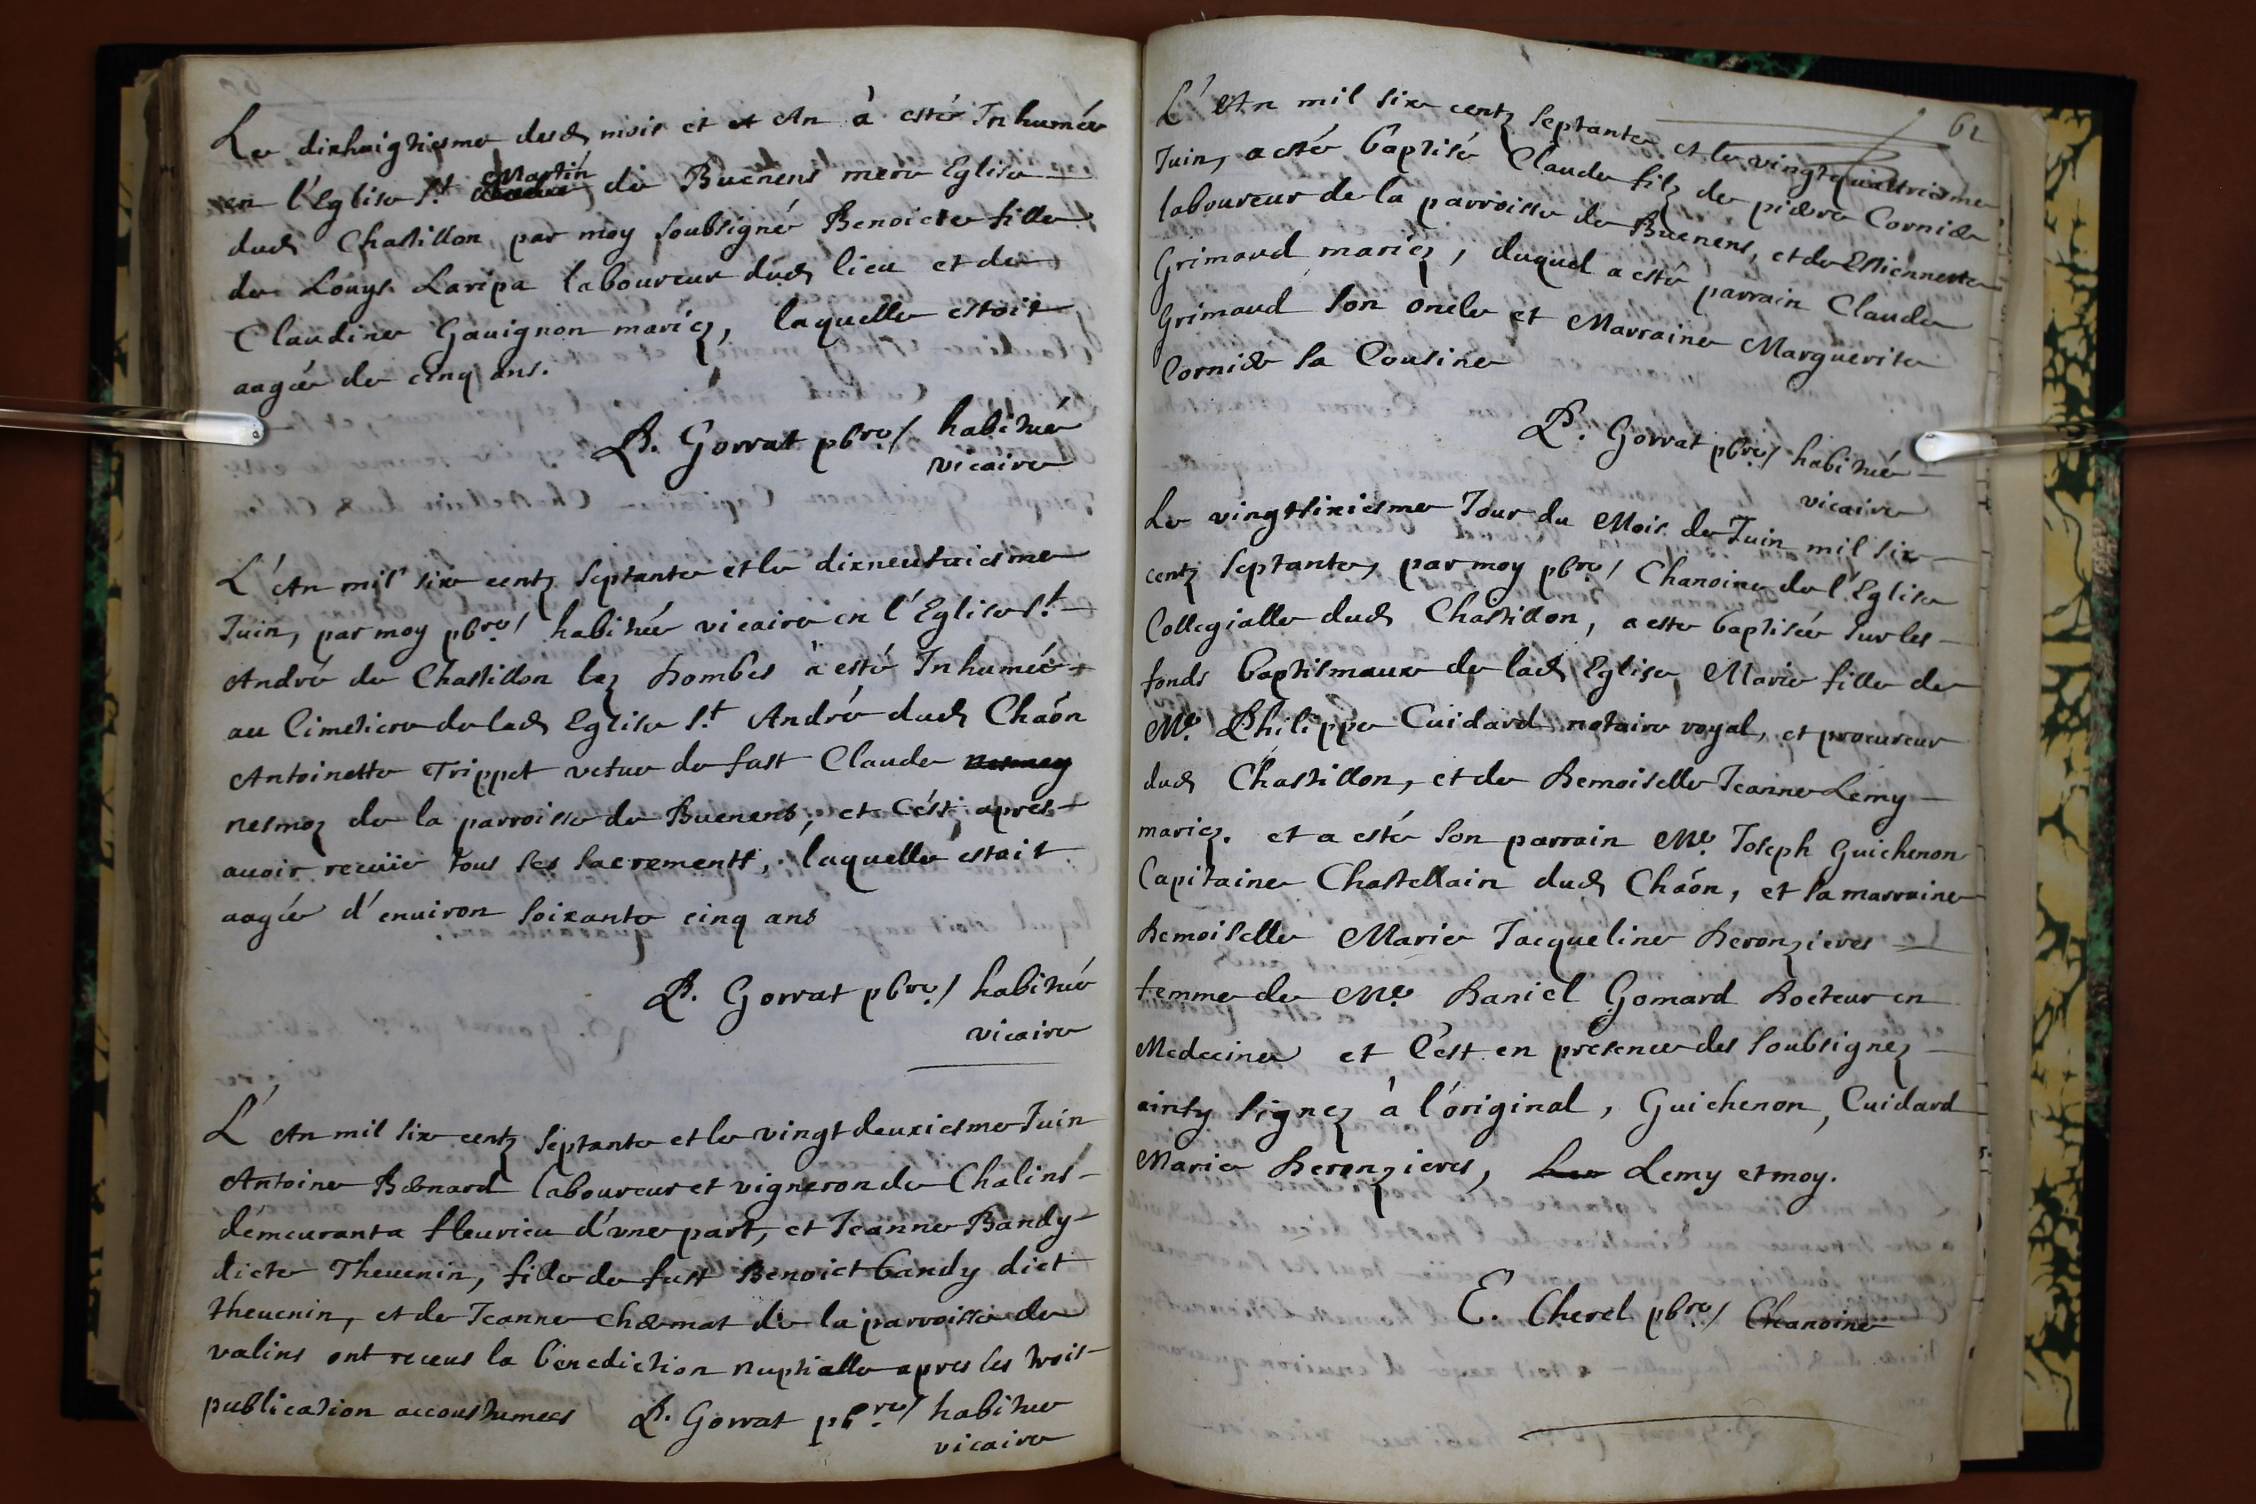 Le dixhuigtiesme desd. mois et et An à esté Inhumée
en l'Eglise St. Martin de Buenens mere Eglise
dud. Chastillon par moy soubsigné Benoicte fille
de Louys Laripa laboureur dud. lieu et de
Claudine Gauignon mariez, laquelle estoit
aagée de cinq ans.
P. Gorrat pbre. / habitué
vicaire
L'An mil six centz septante et le dixneufuiesme
Juin, par moy pbre. / habitué vicaire en l'Eglise St.
André de Chastillon lez Dombes à esté Inhumée
au Cimetiere de lad. Eglise St. André dud. Chaón
Antoinette Trippet vefue de fust Claude
nesmoz de la parroisse de Buenens, et C'est apres
auoir receüe tous ses sacrements, laquelle estoit
aagée d'enuiron soixante cinq ans
P. Gorrat pbre. / habitué
vicaire
L'An mil six centz septante et le vingt deuxiesme Juin
Antoine Benard laboureur et vigneron de Chalins
démeurant a fleurieu d'vne part, et Jeanne Bandy
dicte Theuenin, fille de fust Benoict bandy dict
theuenin, et de Jeanne Chermat de la parroisse de
valins ont receus la benediction nuptialle apres les trois
publication accoustumees P. Gorrat pbre. / habitue
vicaire
61
L'An mil six centz septante et le vingtquattriesme
Juin, a esté baptisé Claude filz de pierre Cornier
laboureur de la parroisse de Buenens, et de Estiennette
Grimaud mariez, duquel a esté parrain Claude
Grimaud son oncle et Marraine Marguerite
Cornier sa Cousine
P. Gorrat pbre. / habitué
vicaire
Le vingtsixiesme Jour du Mois de Juin mil six
centz septante, par moy pbre. / Chanoine de l'Eglise
Collegialle dud. Chastillon, a este baptisée sur les
fonds baptismaux de lad. Eglise, Marie fille de
Me. Philippe Cuidard notaire royal, et procureur
dud. Chastillon, et de Demoiselle Jeanne Lemy
mariez. et a esté son parrain Me. Joseph Guichenon
Capitaine Chastellain dud. Chaón, et sa marraine
Demoiselle Marie Jacqueline Deronzieres
femme de Me. Daniel Gomard Docteur en
Medecine et C'est en presence des soubsignez
ainsy signez à l'original, Guichenon, Cuidard
Marie Deronzieres, Lemy et moy.
E. Cherel pbre. / Chanoine